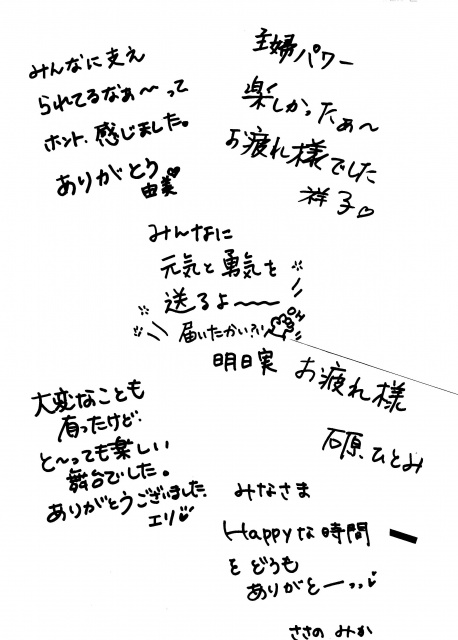 みんなに支え
られてるなぁ〜って
ホント、感じました。
ありがとう♥
由美
主婦パワー
楽しかったぁ〜
お疲れ様でした
祥子♡
みんなに
元気と勇気を
送るよ〜〜
届いたかい?!!
OH
明日実
お疲れ様
石原ひとみ
大変なことも
有ったけど・
と〜っても楽しい
舞台でした。
ありがとうございました
エリ
みなさま
Happyな時間
を どうも
ありがとーっっ
ささの みか